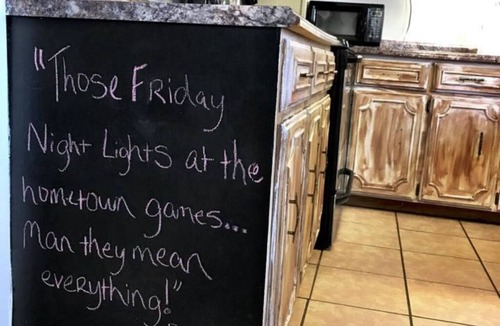 "Those Friday
Night Lights at the
hometown games...
Man they mean
everything!"